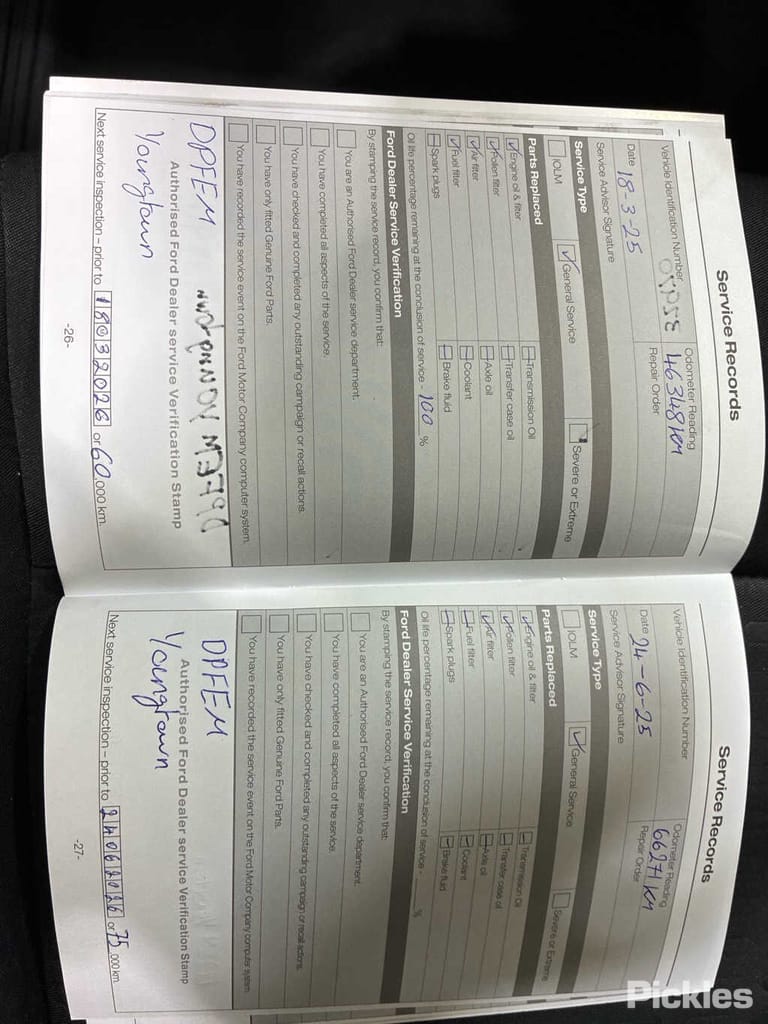 Service Records
Vehicle Identification Number
Odometer Reading
46348KM
Date 18-3-25
Repair Order
Service Advisor Signature
Service Type
IOLM
General Service
Severe or Extreme
Parts Replaced
Engine oil & filter
Transmission Oil
Pollen filter
Transfer case oil
Air filter
Axle oil
Fuel filter
Coolant
Spark plugs
Brake fluid
Oil life percentage remaining at the conclusion of service - 100 %
Ford Dealer Service Verification
By stamping the service record, you confirm that:
You are an Authorised Ford Dealer service department.
You have completed all aspects of the service.
You have checked and completed any outstanding campaign or recall actions.
You have only fitted Genuine Ford Parts.
You have recorded the service event on the Ford Motor Company computer system.
DPFEM
Authorised Ford Dealer service Verification Stamp
Youngtown
Next service inspection – prior to 18032026 or 60,000 km.
-26-
Service Records
Vehicle Identification Number
Odometer Reading
66271KM
Date 24-6-25
Repair Order
Service Advisor Signature
Service Type
IOLM
General Service
Severe or Extreme
Parts Replaced
Engine oil & filter
Transmission Oil
Pollen filter
Transfer case oil
Air filter
Axle oil
Fuel filter
Coolant
Spark plugs
Brake fluid
Oil life percentage remaining at the conclusion of service - %
Ford Dealer Service Verification
By stamping the service record, you confirm that:
You are an Authorised Ford Dealer service department.
You have completed all aspects of the service.
You have checked and completed any outstanding campaign or recall actions.
You have only fitted Genuine Ford Parts.
You have recorded the service event on the Ford Motor Company computer system.
DPFEM
Authorised Ford Dealer service Verification Stamp
Youngtown
Next service inspection – prior to 24062026 or 75,000 km.
-27-
Pickles